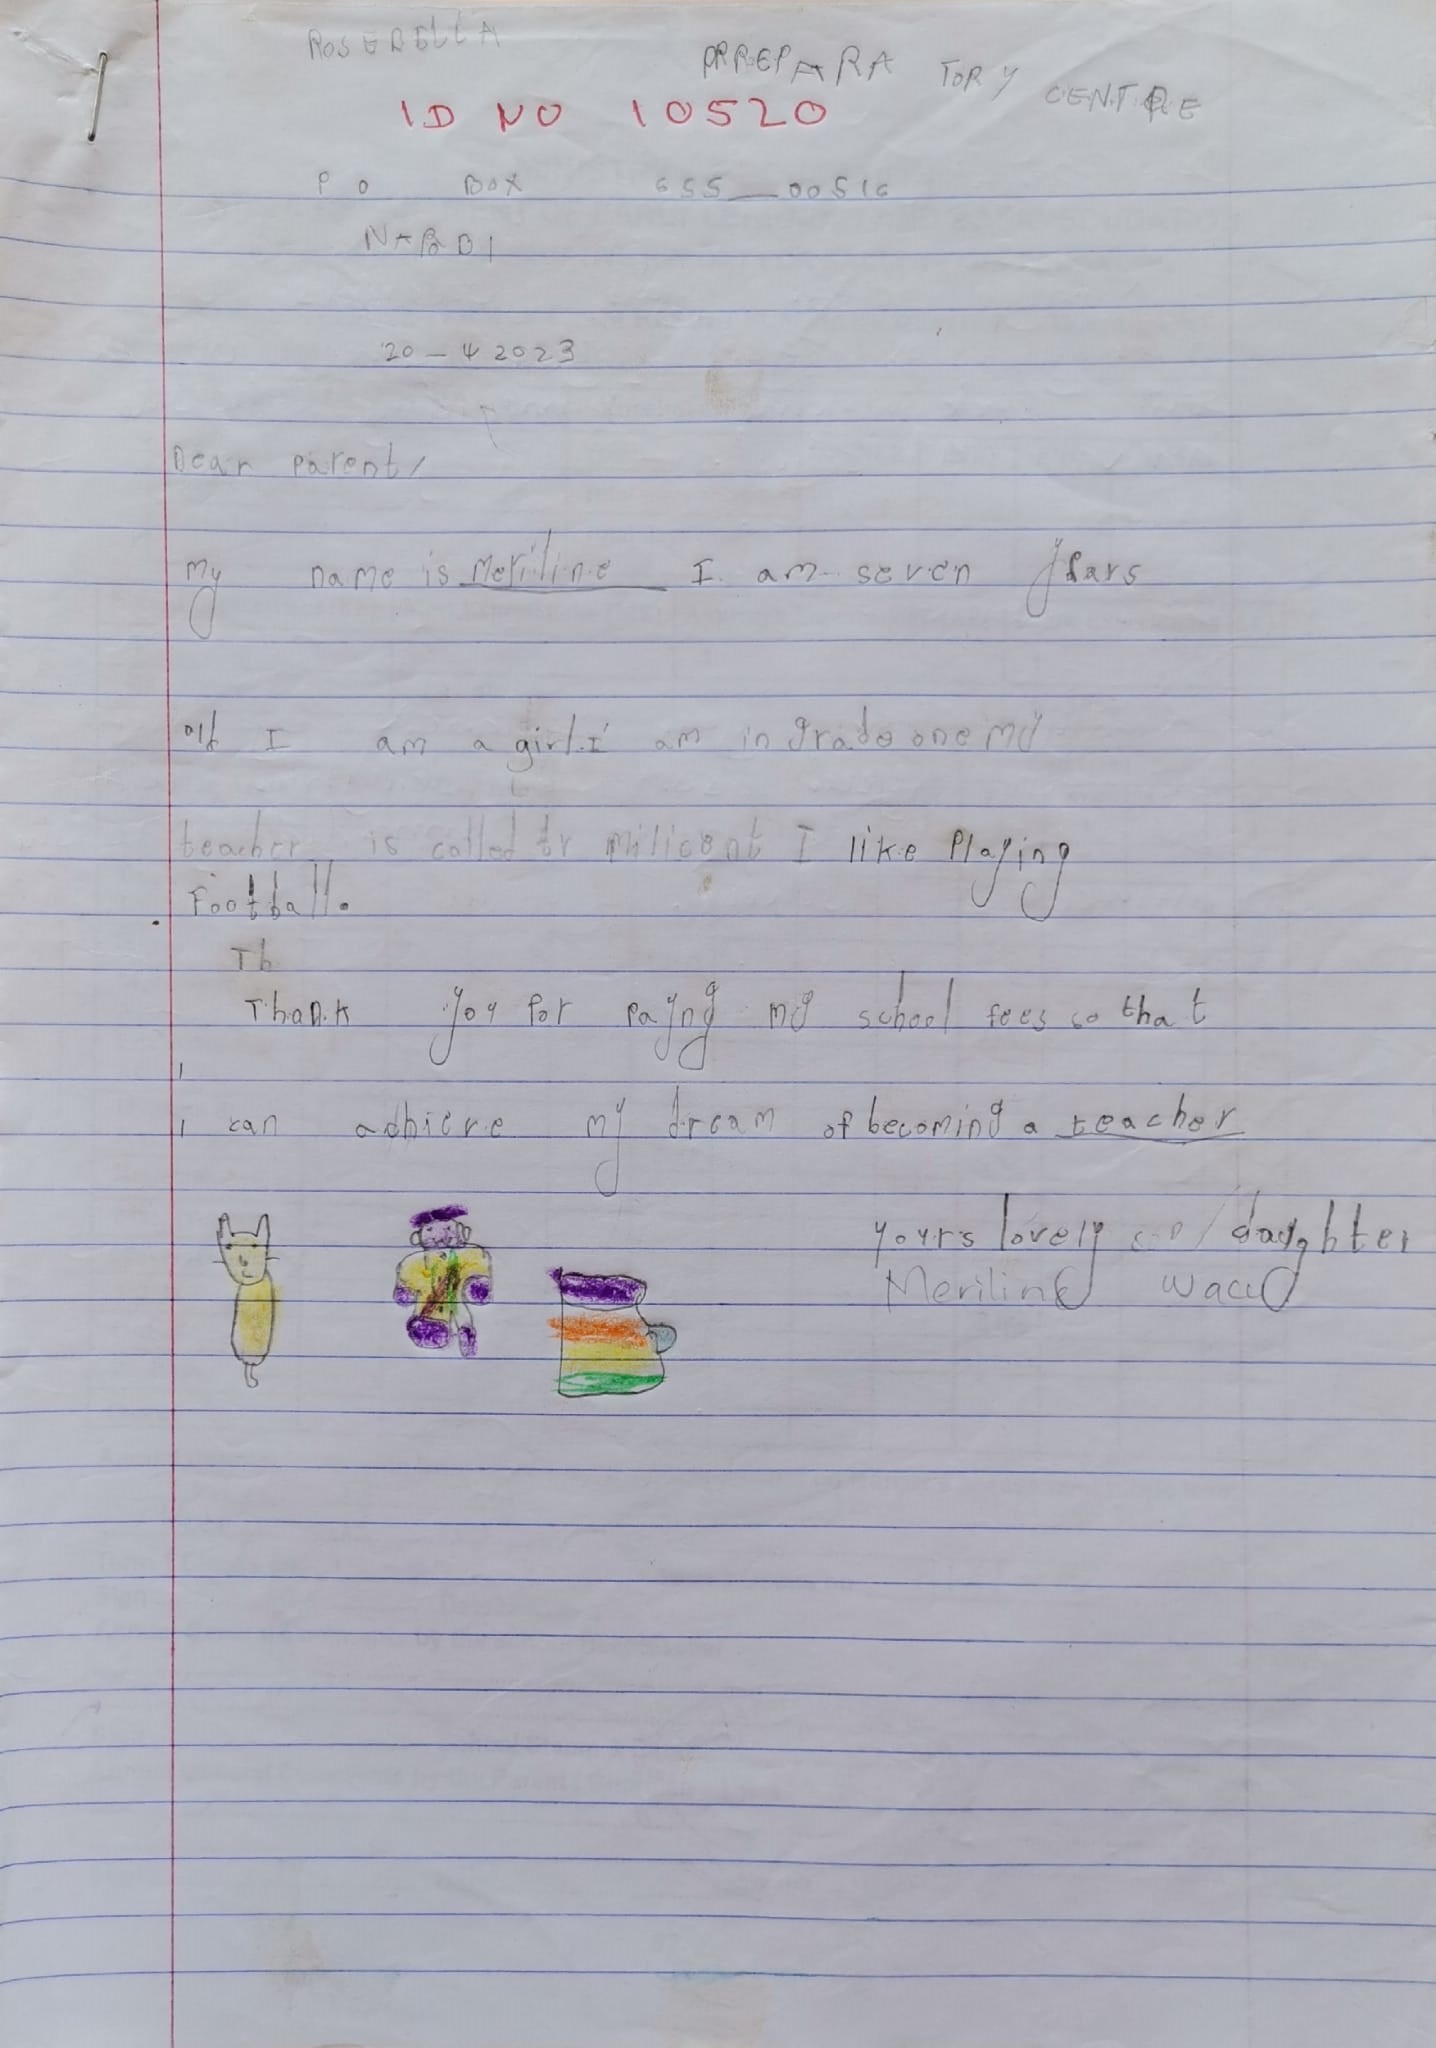 ROSEBELLA PRREPARA TORY CENTRE
ID NO 10520
P O BOX 655_00516
NARBI
20-4 2023
Dear parent,
my name is Meriline I am seven years
old I am a girl.I am in grade one my
teacher is called tr milicent I like Playing
Football.
Th
Thank yoy for payng my school fees so that
I can achieve my dream of becoming a teacher
yoyrs lovely daughter
Meriline